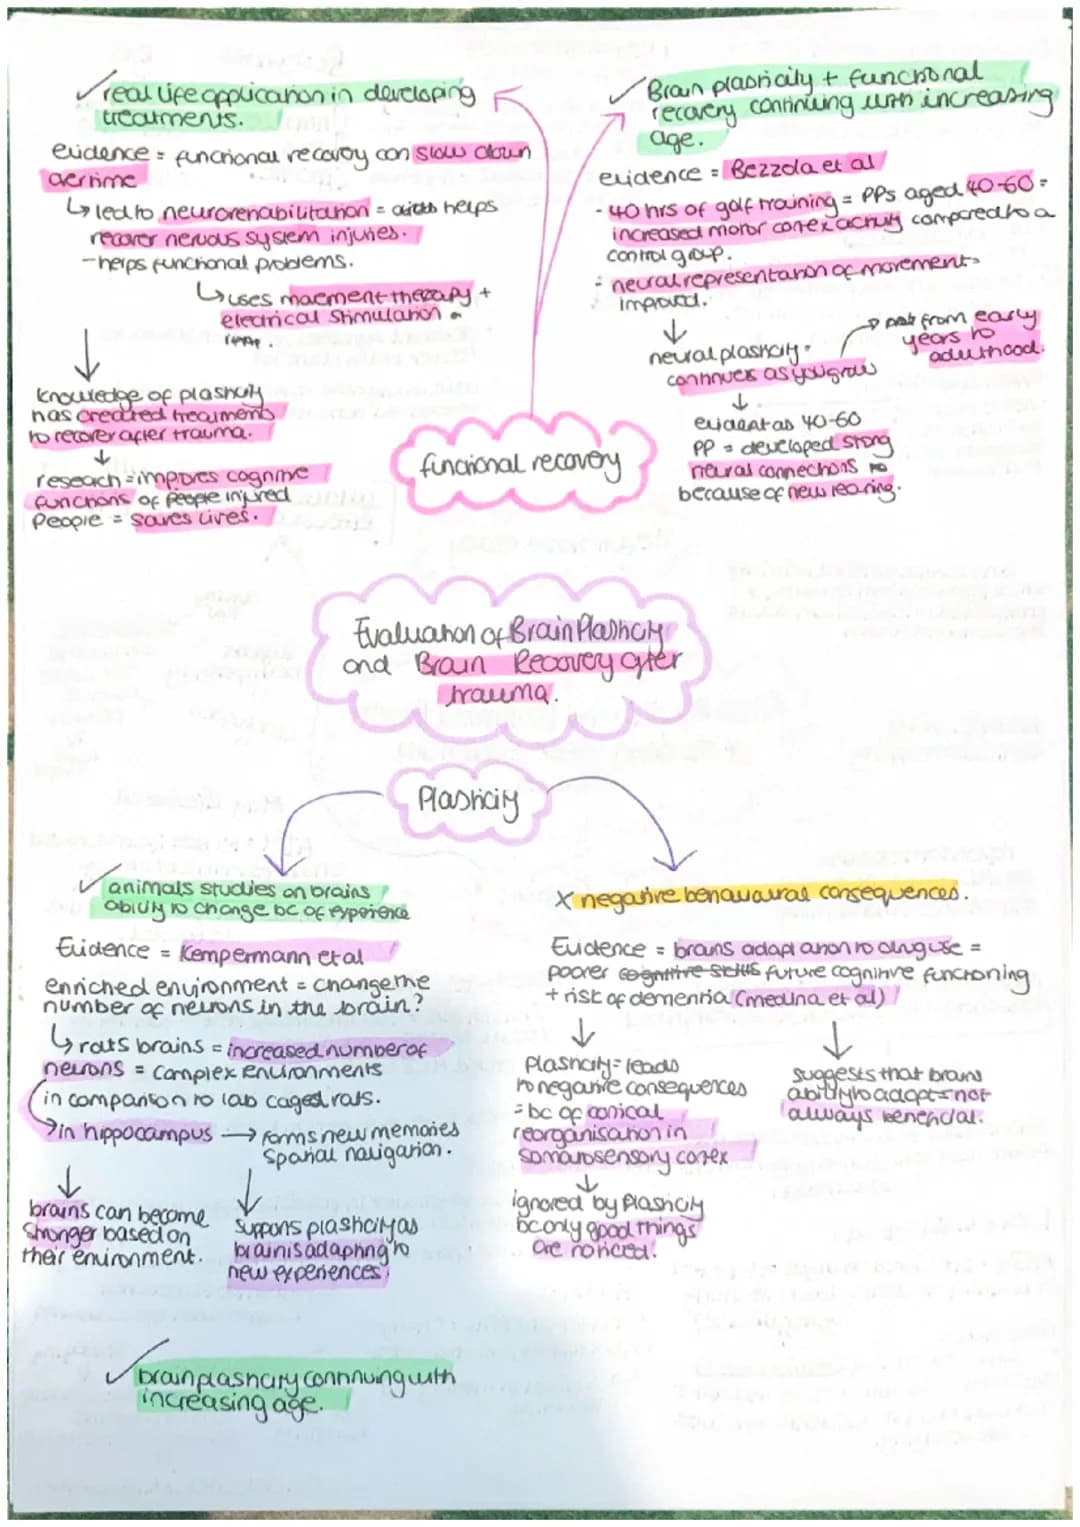 real life application in developing
treatments.
evidence = functional recovery can slow down
overtime
↳ led to neurorehabilitation = helps
recover nervous system injuries.
- helps functional problems.
↳ uses movement therapy +
electrical stimulation
↓
knowledge of plasticity
has created treatments
to recover after trauma.
↓
research = improves cognitive
functions of people injured
People = saves lives.
Brain plasticity + functional
recovery continuing with increasing
age.
evidence = Bezzola et al
- 40 hrs of golf training = PPs aged 40-60 =
increased motor cortex activity compared to a
control group.
- neural representation of movement =
improved.
↓
neural plasticity =
continues as you grow
→ not from early
years to
adulthood.
↓
evident as 40-60
PP = developed strong
neural connections
because of new learing.
functional recovery
Evaluation of Brain Plasticity
and Brain Recovery after
trauma.
Plasticity
animals studies on brains
ability to change bc of experience
Evidence = Kempermann et al
enriched environment = change the
number of neurons in the brain?
↳ rats brains = increased number of
neurons = complex environments
in comparison to lab caged rats.
→ in hippocampus → forms new memories
Spatial navigation.
↓
brains can become
stronger based on
their environment.
↓
supports plasticity as
brain is adapting to
new experiences
brain plasticity continuing with
increasing age.
X negative behavioural consequences.
Evidence = brains adaptation to drug use =
poorer cognitive skills future cognitive functioning
+ risk of dementia (medina et al)
↓
Plasticity = leads
to negative consequences
= bc of cortical
reorganisation in
somatosensory cortex
↓
ignored by plasticity
bc only good things
are noticed.
↓
suggests that brains
ability to adapt = not
always beneficial.